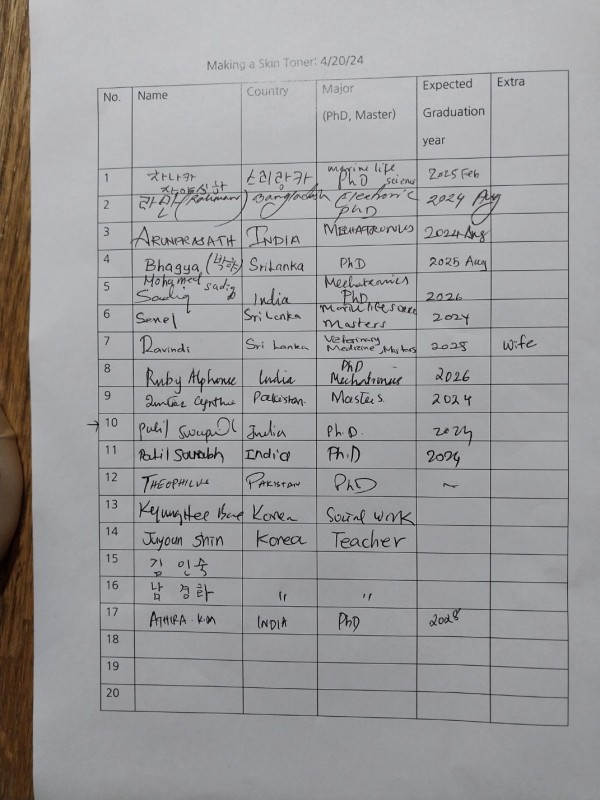 Making a Skin Toner: 4/20/24
No. Name Country Major (PhD, Master) Expected Graduation year Extra
1 차나카 스리랑카 marine life science PhD 2025 Feb
2 라만 (Rahman) Bangladesh Electronic PhD 2024 Aug
3 ARUNPRASATH INDIA MECHATRONICS 2024 Aug
4 Bhagya SriLanka PhD 2025 Aug
5 Mohamed Sadiq sadiq India Mechatronics PhD 2026
6 Senel Sri Lanka Masters 2024
7 Ravindi Sri Lanka Veterinary Medicine, Masters 2025 wife
8 Ruby Alphonse India PhD Mechatronics 2026
9 Pakistan. Masters 2024
→ 10 Patil Swapnil India Ph.D. 2024
11 Patil Saurabh India Ph.D 2024
12 THEOPHILUS PAKISTAN PhD ~
13 KyungHee Korea Social work
14 Juyoun Shin Korea Teacher
15 김 인숙
16 남 경화 〃 〃
17 ATHIRA K.M INDIA PhD 2028
18
19
20